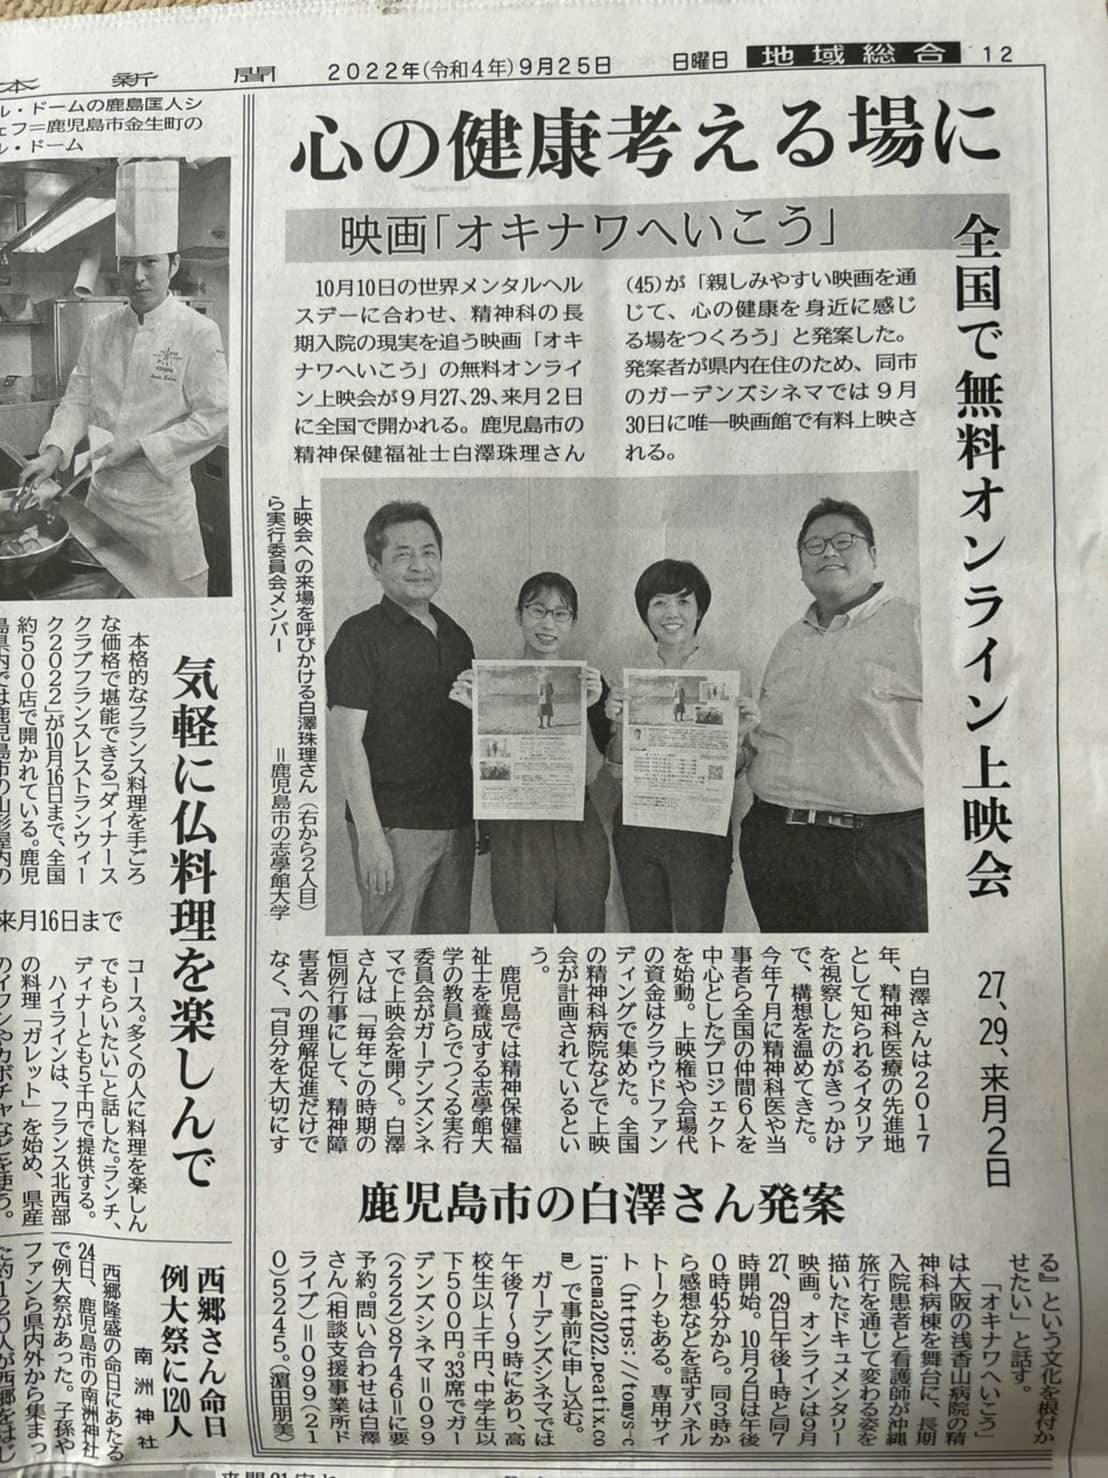 本新聞
2022年(令和4年)9月25日
日曜日
地域総合
12
心の健康考える場に
映画「オキナワへいこう」
全国で無料オンライン上映会
27、29、来月2日
10月10日の世界メンタルヘル
スデーに合わせ、精神科の長
期入院の現実を追う映画「オキ
ナワへいこう」の無料オンライ
ン上映会が9月27、29、来月2日
に全国で開かれる。鹿児島市の
精神保健福祉士白澤珠理さん
(45)が「親しみやすい映画を通
じて、心の健康を身近に感じ
る場をつくろう」と発案した。
発案者が県内在住のため、同市
のガーデンズシネマでは9月
30日に唯一映画館で有料上映さ
れる。
上映会への来場を呼びかける白澤珠理さん(右から2人目)
ら実行委員会メンバー
=鹿児島市の志學館大学
白澤さんは2017
年、精神科医療の先進地
として知られるイタリア
を視察したのがきっかけ
で、構想を温めてきた。
今年7月に精神科医や当
事者ら全国の仲間6人を
中心としたプロジェクト
を始動。上映権や会場代
の資金はクラウドファン
ディングで集めた。全国
の精神科病院などで上映
会が計画されているとい
う。
鹿児島では精神保健福
祉士を養成する志學館大
学の教員らでつくる実行
委員会がガーデンズシネ
マで上映会を開く。白澤
さんは「毎年この時期の
恒例行事にして、精神障
害者への理解促進だけで
なく、『自分を大切にす
鹿児島市の白澤さん発案
る』という文化を根付か
せたい」と話す。
「オキナワへいこう」
は大阪の浅香山病院の精
神科病棟を舞台に、長期
入院患者と看護師が沖縄
旅行を通じて変わる姿を
描いたドキュメンタリー
映画。オンラインは9月
27、29日午後1時と同7
時開始。10月2日は午後
0時45分から。同3時か
ら感想などを話すパネル
トークもある。専用サイ
ト(https://tomys-c
inema2022.peatix.co
m)で事前に申し込む。
ガーデンズシネマでは
午後7〜9時にあり、高
校生以上千円、中学生以
下500円。33席でガー
デンズシネマ=099
(222)8746=に要
予約。問い合わせは白澤
さん(相談支援事業所ド
ライブ)=099(21
0)5245。(濵田朋美)
ル・ドームの鹿島匡人シ
ェフ=鹿児島市金生町の
ル・ドーム
気軽に仏料理を楽しんで
来月16日まで
本格的なフランス料理を手ごろ
な価格で堪能できる「ダイナース
クラブフランスレストランウィー
ク2022」が10月16日まで、全国
約500店で開かれている。鹿児
島県内では鹿児島市の山形屋内の
コース。多くの人に料理を楽しん
でもらいたい」と話した。ランチ、
ディナーとも5千円で提供する。
ハイラインは、フランス北西部
の料理「ガレット」を始め、県産
西郷さん命日
例大祭に120人
南洲神社
西郷隆盛の命日にあたる
24日、鹿児島市の南洲神社
で例大祭があった。子孫や
ファンら県内外から集まっ
た約120人が西郷をはじ